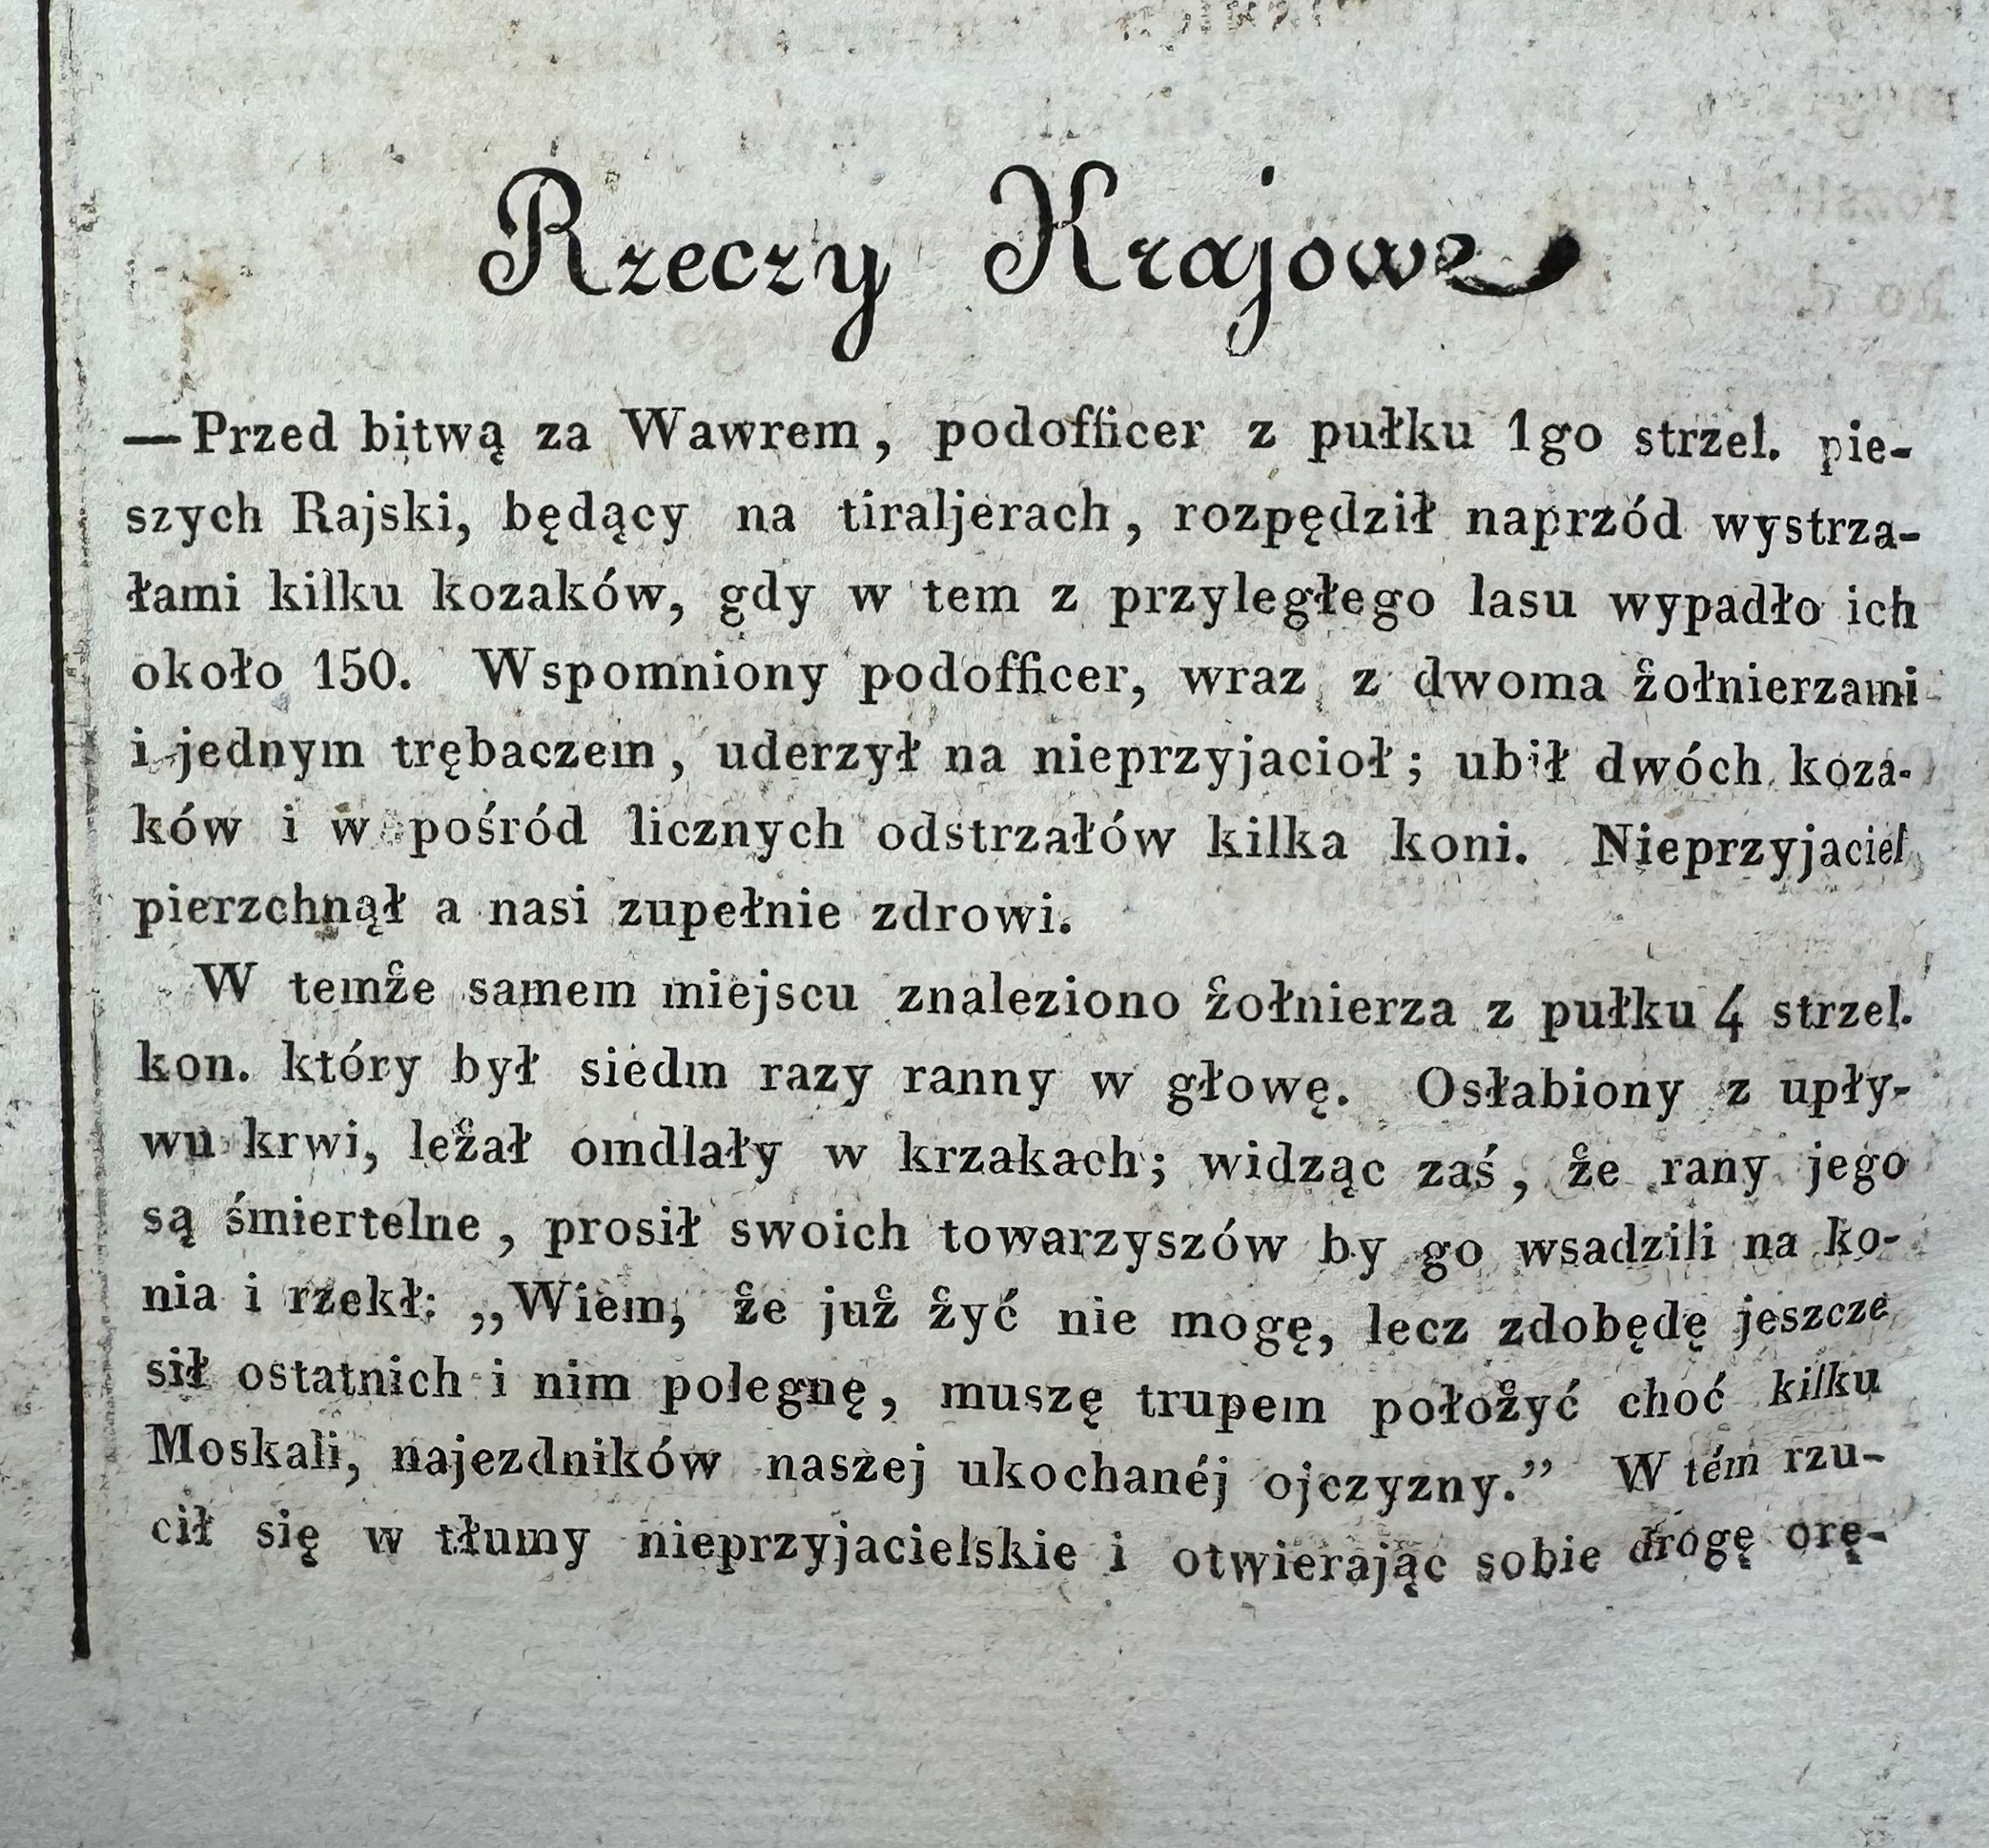 Rzeczy Krajowe
— Przed bitwą za Wawrem, podofficer z pułku 1go strzel. pie-
szych Rajski, będący na tiraljerach, rozpędził naprzód wystrza-
łami kilku kozaków, gdy w tem z przyległego lasu wypadło ich
około 150. Wspomniony podofficer, wraz z dwoma żołnierzami
i jednym trębaczem, uderzył na nieprzyjacioł; ubił dwóch koza-
ków i w pośród licznych odstrzałów kilka koni. Nieprzyjaciel
pierzchnął a nasi zupełnie zdrowi.
W temże samem miejscu znaleziono żołnierza z pułku 4 strzel.
kon. który był siedm razy ranny w głowę. Osłabiony z upły-
wu krwi, leżał omdlały w krzakach; widząc zaś, że rany jego
są śmiertelne, prosił swoich towarzyszów by go wsadzili na ko-
nia i rzekł: „Wiem, że już żyć nie mogę, lecz zdobędę jeszcze
sił ostatnich i nim polegnę, muszę trupem położyć choć kilku
Moskali, najezdników naszej ukochanéj ojczyzny.” W tém rzu-
cił się w tłumy nieprzyjacielskie i otwierając sobie drogę orę-